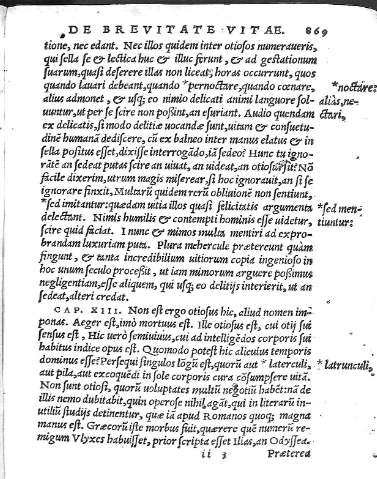 DE BREVITATE VITAE. 869
tione, nec edant. Nec illos quidem inter otiosos numeraueris,
qui sella se & lectica huc & illuc ferunt, & ad gestationum
suarum, quasi deserere illas non liceat, horas occurrunt, quos
quando lauari debeant, quando *pernoctare, quando cœnare, *noctare:
alius admonet, & usq; eo nimio delicati animi languore sol- aliâs, ne-
uuntur, ut per se scire non possint, an esuriant. Audio quendam ctari,
ex delicatis, si modo delitiæ uocandæ sunt, uitam & consuetu-
dinē humanā dediscere, cū ex balneo inter manus elatus & in
sella positus esset, dixisse interrogādo, iā sedeo? Hunc tu igno-
rātē an sedeat putas scire an uiuat, an uideat, an otiosus sit? Nō
facile dixerim, utrum magis miserear, si hoc ignorauit, an si se
ignorare finxit. Multarū quidem rerū obliuionē non sentiunt,
*sed imitantur: quædam uitia illos quasi felicitatis argumenta *sed men-
delectant. Nimis humilis & contempti hominis esse uidetur, tiuntur:
scire quid faciat. I nunc & mimos multa mentiri ad expro-
brandam luxuriam puta. Plura mehercule prætereunt quàm
fingunt, & tanta incredibilium uitiorum copia ingenioso in
hoc unum seculo processit, ut iam mimorum arguere possimus
negligentiam, esse aliquem, qui usq; eo delitijs interierit, ut an
sedeat, alteri credat.
CAP. XIII. Non est ergo otiosus hic, aliud nomen im-
ponas. Aeger est, imò mortuus est. Ille otiosus est, cui otij sui
sensus est. Hic uerò semiuiuus, cui ad intelligēdos corporis sui
habitus indice opus est. Quomodo potest hic alicuius temporis
dominus esse? Persequi singulos lōgū est, quorū aut *laterculi, *latrunculi,
aut pila, aut excoquēdi in sole corporis cura cōsumpsere uitā.
Non sunt otiosi, quorū uoluptates multū negotiū habēt: nā de
illis nemo dubitabit, quin operose nihil agāt, qui in literarū in-
utiliū studijs detinentur, quæ iā apud Romanos quoq; magna
manus est. Græcorū iste morbus fuit, quærere quē numerū re-
migum Vlyxes habuisset, prior scripta esset Ilias, an Odyssea.
ii 3 Præterea